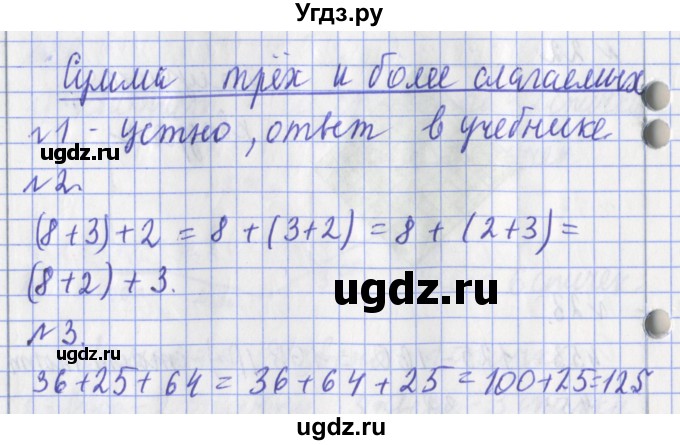 Угдз.ру
Сумма трёх и более слагаемых
№1 - устно, ответ в учебнике
№2.
(8+3)+2 = 8 + (3+2) = 8 + (2+3) =
(8+2) + 3.
№3.
36+25+64 = 36+64+25 = 100+25=125
ugdz.ru
ugdz.ru
ugdz.ru
ugdz.ru
ugdz.ru